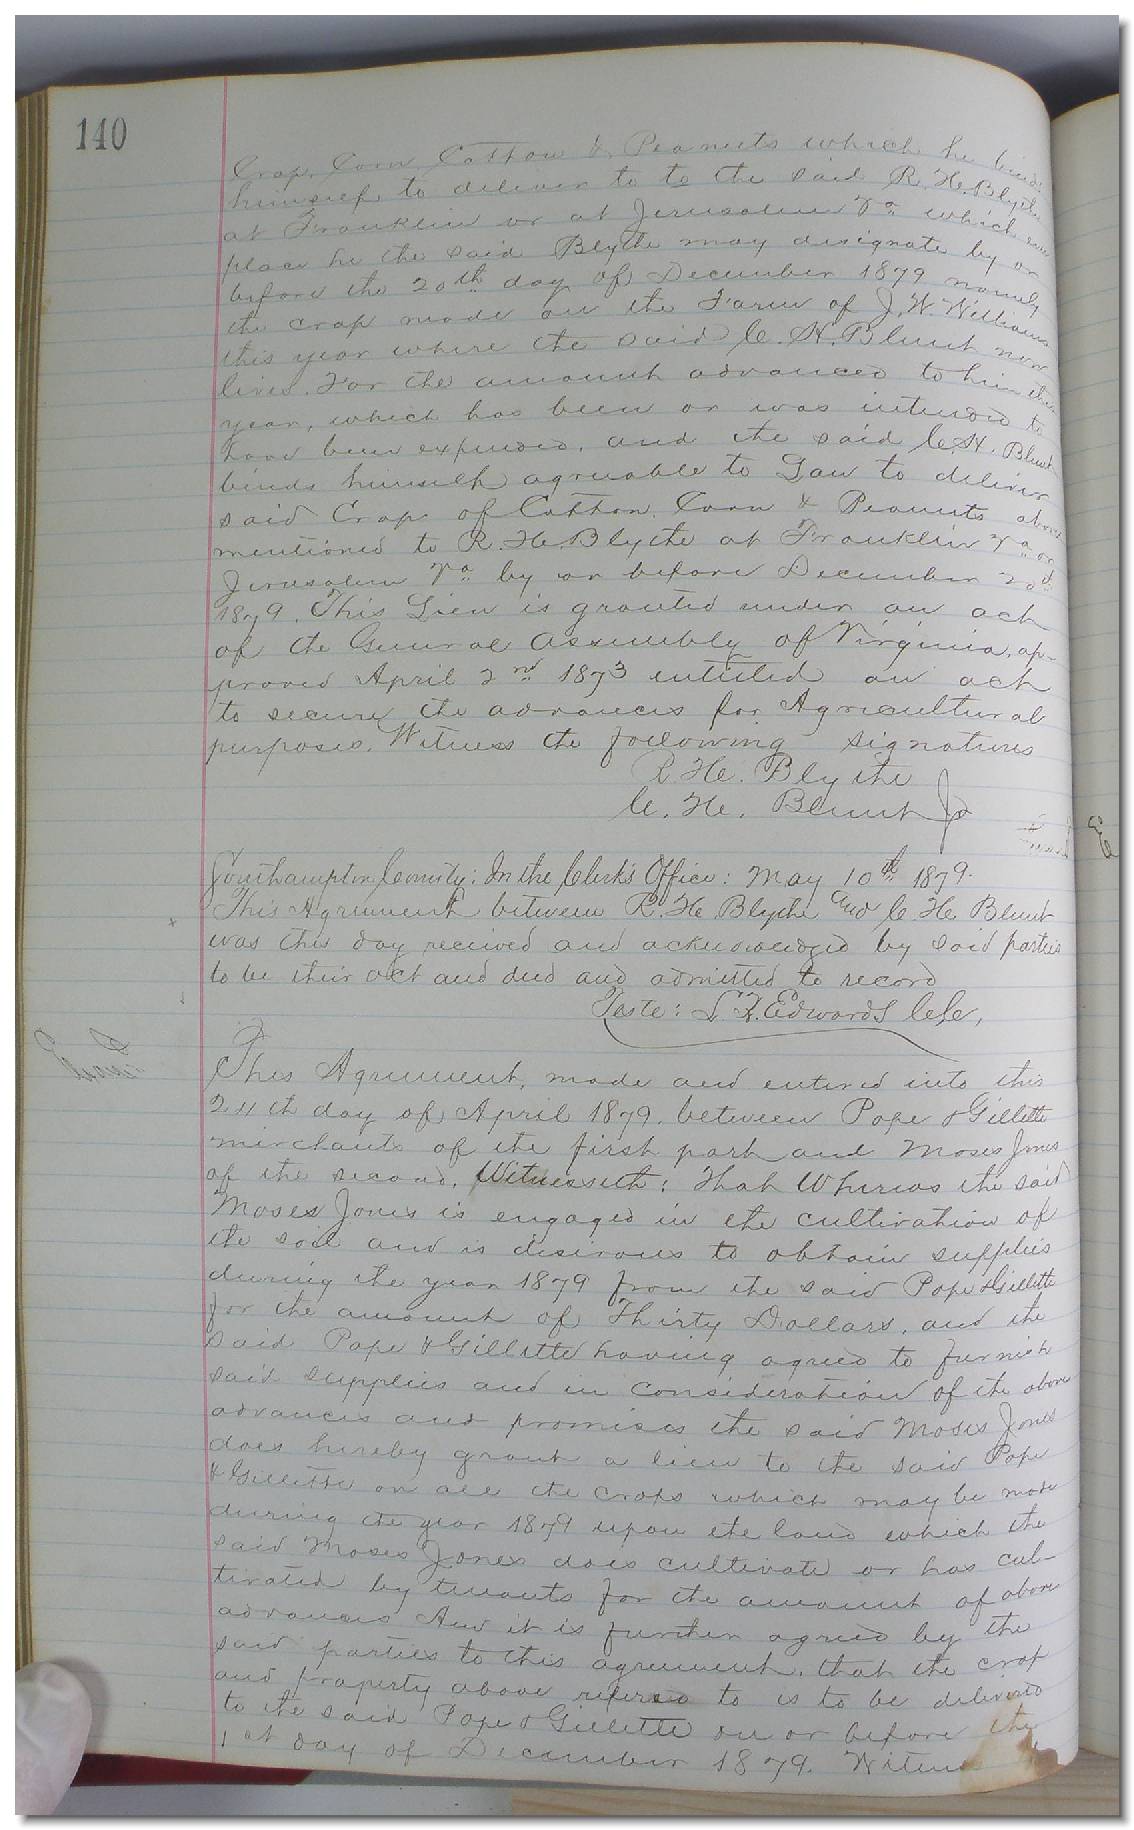 140
Crop, Corn, Cotton & Peanuts which he binds
himself to deliver to to the said R. H. Blythe
at Franklin or at Jerusalem Va which ever
place he the said Blythe may designate by or
before the 20th day of December 1879 namely
the crop made on the Farm of J. W. Williams
this year where the said C. H. Blunt now
lives. For the amount advanced to him this
year, which has been or was intended to
have been expended, and the said C. H. Blunt
binds himself agreable to Law to deliver
said Crop of Cotton, Corn & Peanuts above
mentioned to R. H. Blythe at Franklin Va or
Jerusalem Va by or before December 20th
1879. This Lien is granted under an act
of the General Assembly of Virginia, ap-
proved April 2nd 1873 entitled an act
to secure the advances for Agricultural
purposes. Witness the following signatures
R. H. Blythe
C. H. Blunt Jr
Southampton County: In the Clerk's Office: May 10th 1879.
This Agreement between R. H. Blythe and C H Blunt
was this day received and acknowledged by said parties
to be their act and deed and admitted to record
Teste: L. R. Edwards C.C.
This Agreement, made and entered into this
24th day of April 1879. between Pope & Gillette
merchants of the first part and Moses Jones
of the second, Witnesseth: That Whereas the said
Moses Jones is engaged in the cultivation of
the soil and is desirous to obtain supplies
during the year 1879 from the said Pope & Gillette
for the amount of Thirty Dollars, and the
said Pope & Gillette having agreed to furnish
said supplies and in consideration of the above
advances and promises the said Moses Jones
does hereby grant a lien to the said Pope
& Gillette on all the crops which may be made
during the year 1879 upon the land which the
said Moses Jones does cultivate or has cul-
tivated by tenants for the amount of above
advances And it is further agreed by the
said parties to this agreement, that the crop
and property above refered to is to be delivered
to the said Pope & Gillette on or before the
1st day of December 1879. Witness